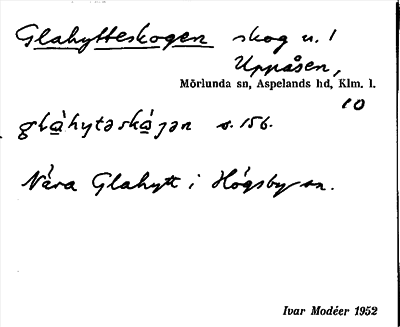 Glahytteskogen skog u. 1
Uppåsen,
Mörlunda sn, Aspelands hd, Klm. l.
10
glàhytəskájən s. 156.
Nära Glahytt i Högsby sn.
Ivar Modéer 1952